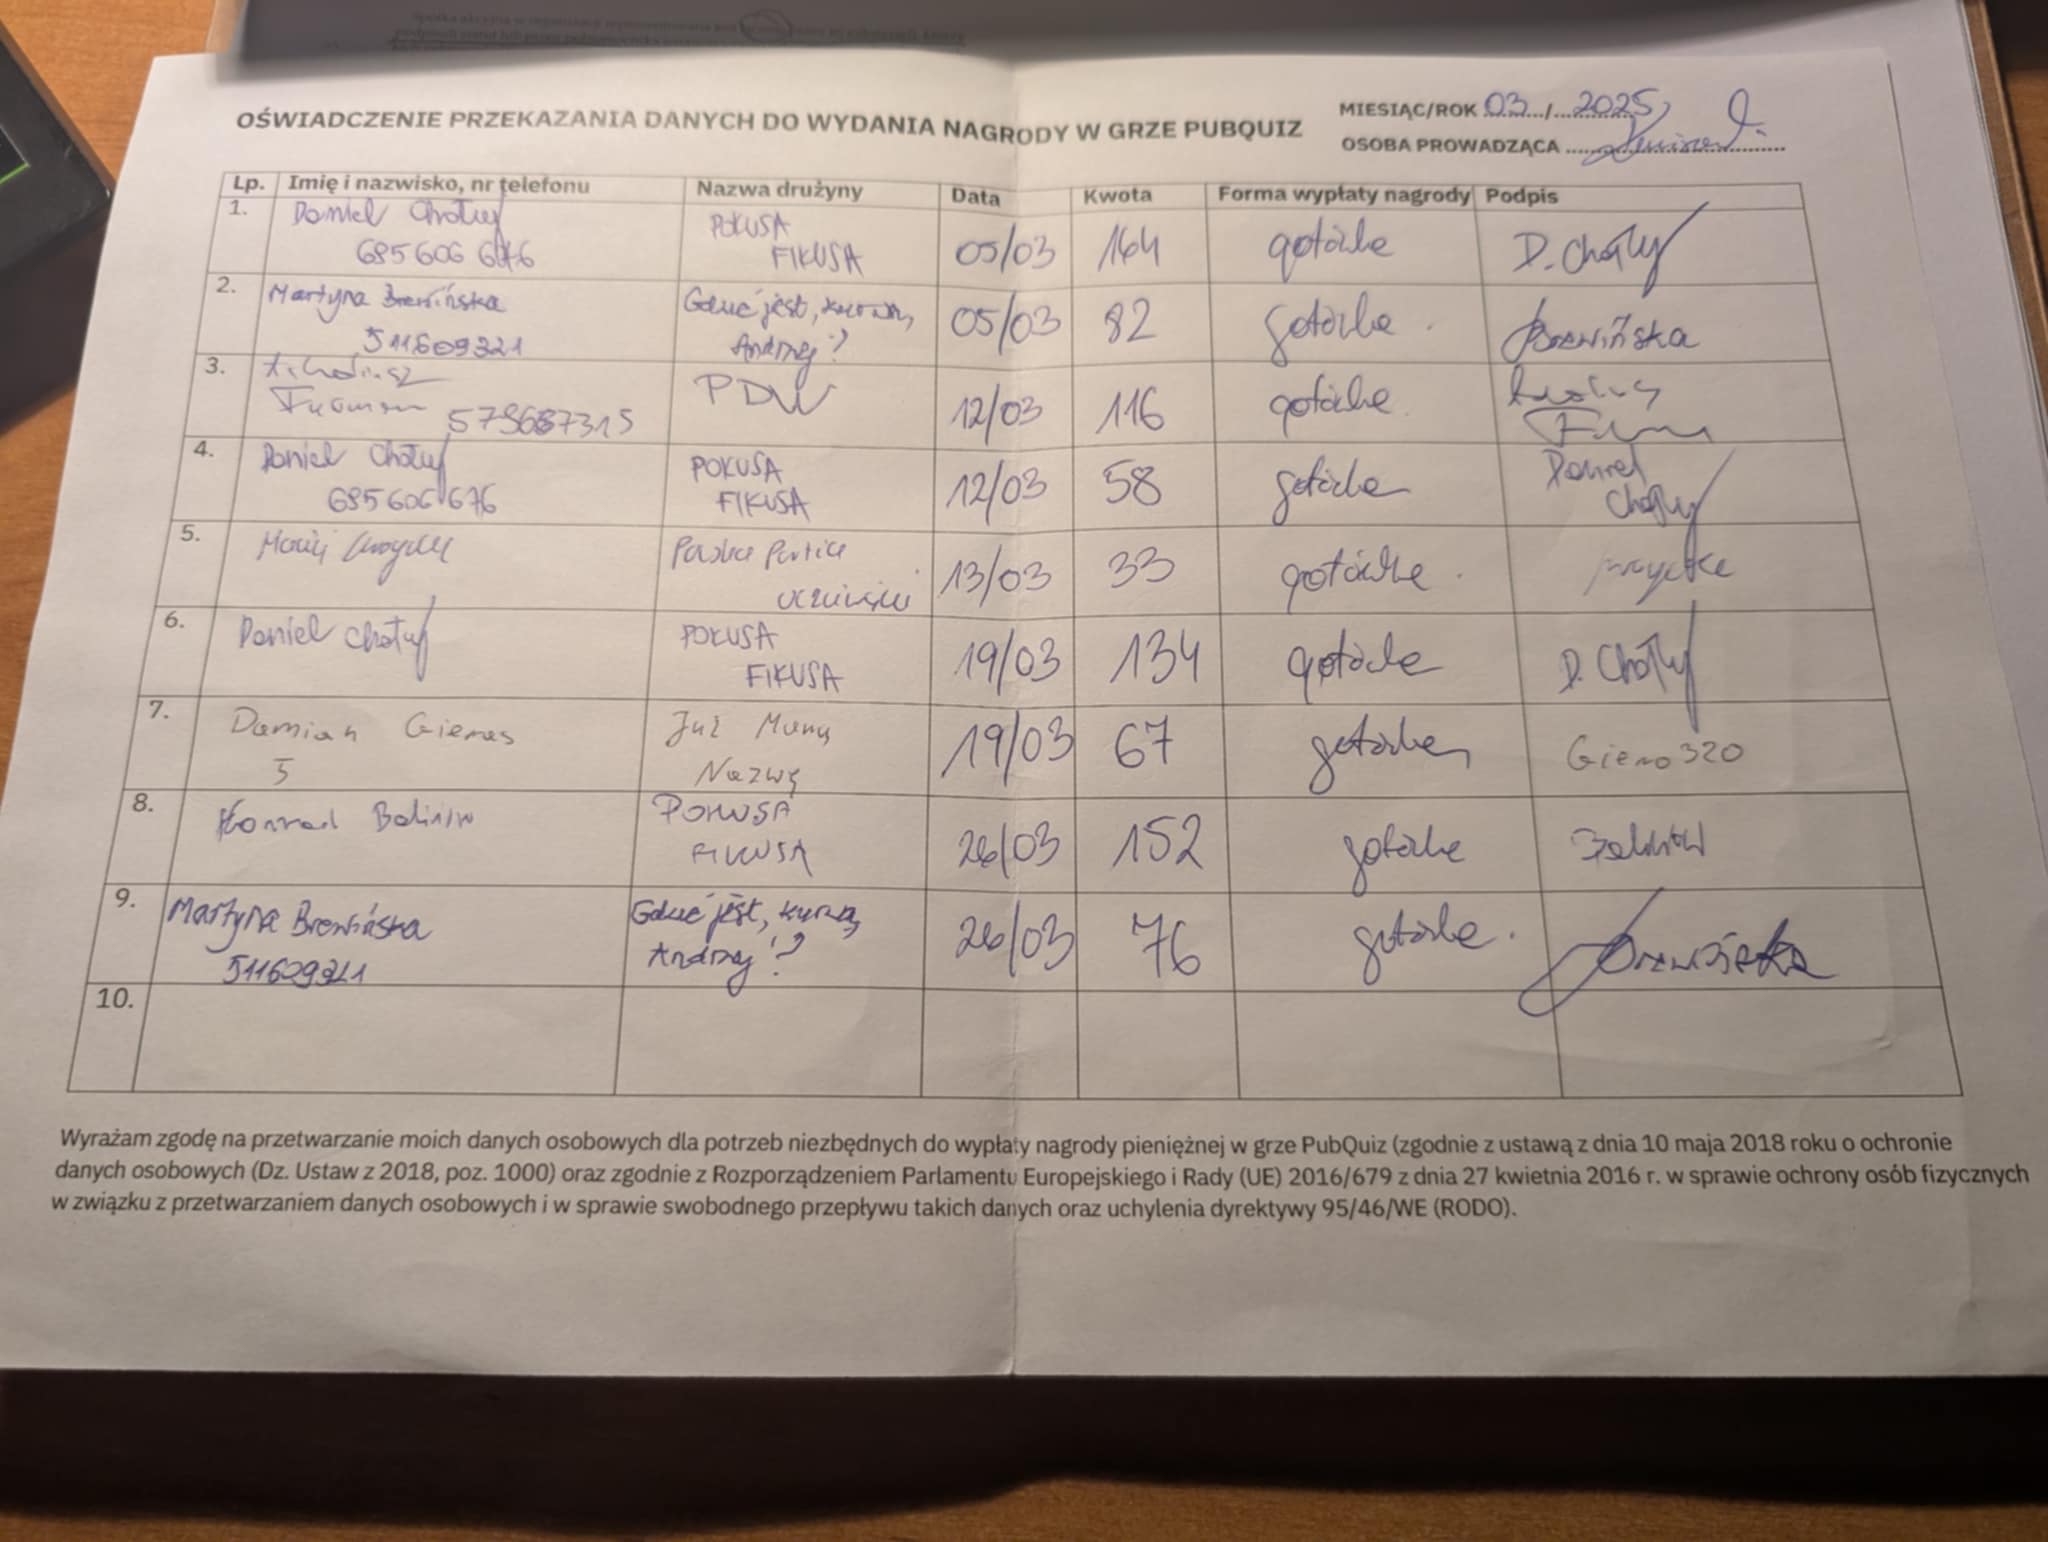 OŚWIADCZENIE PRZEKAZANIA DANYCH DO WYDANIA NAGRODY W GRZE PUBQUIZ
MIESIĄC/ROK 03/2025
OSOBA PROWADZĄCA
Lp. Imię i nazwisko, nr telefonu Nazwa drużyny Data Kwota Forma wypłaty nagrody Podpis
1. Daniel Chołuj POKUSA FIKUSA 05/03 164 gotówka D. Chołuj
685 606 676
2. Martyna Brewińska Gdzie jest, kurwa, Andrzej? 05/03 82 gotówka Brewińska
511609321
3. PDW 12/03 116 gotówka
4. Daniel Chołuj POKUSA FIKUSA 12/03 58 gotówka Daniel Chołuj
685 606 676
5. 13/03 33 gotówka
6. Daniel Chołuj POKUSA FIKUSA 19/03 134 gotówka D. Chołuj
7. Damian Gieras Już Mamy Nazwę 19/03 67 gotówka Giero320
5
8. Konrad POKUSA FIKUSA 26/03 152 gotówka
9. Martyna Brewińska Gdzie jest, kurwa, Andrzej? 26/03 76 gotówka Brewińska
511609321
10.
Wyrażam zgodę na przetwarzanie moich danych osobowych dla potrzeb niezbędnych do wypłaty nagrody pieniężnej w grze PubQuiz (zgodnie z ustawą z dnia 10 maja 2018 roku o ochronie
danych osobowych (Dz. Ustaw z 2018, poz. 1000) oraz zgodnie z Rozporządzeniem Parlamentu Europejskiego i Rady (UE) 2016/679 z dnia 27 kwietnia 2016 r. w sprawie ochrony osób fizycznych
w związku z przetwarzaniem danych osobowych i w sprawie swobodnego przepływu takich danych oraz uchylenia dyrektywy 95/46/WE (RODO).